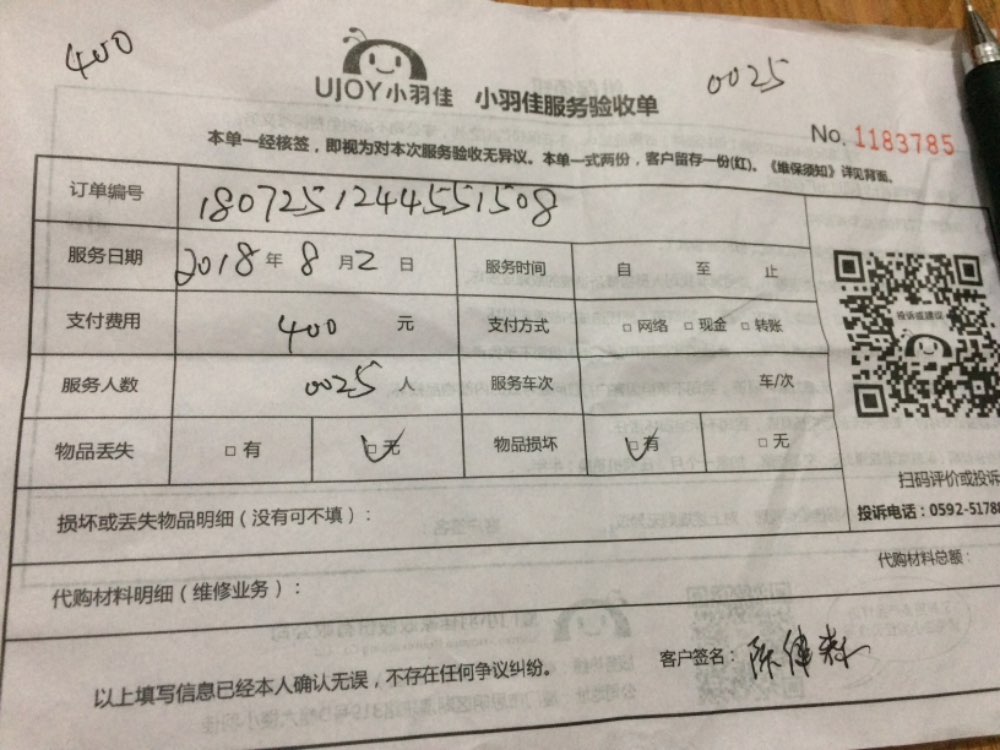 400
0025
UJOY小羽佳 小羽佳服务验收单
No. 1183785
本单一经核签，即视为对本次服务验收无异议。本单一式两份，客户留存一份(红)。《维保须知》详见背面。
订单编号 1807251244551508
服务日期 2018年8月2日 服务时间 自 至 止
投诉或建议
支付费用 400 元 支付方式 □网络 □现金 □转账
服务人数 0025 人 服务车次 车/次
物品丢失 □有 □无 物品损坏 □有 □无
扫码评价或投诉
损坏或丢失物品明细（没有可不填）：
投诉电话：0592-5178
代购材料总额：
代购材料明细（维修业务）：
客户签名：
以上填写信息已经本人确认无误，不存在任何争议纠纷。